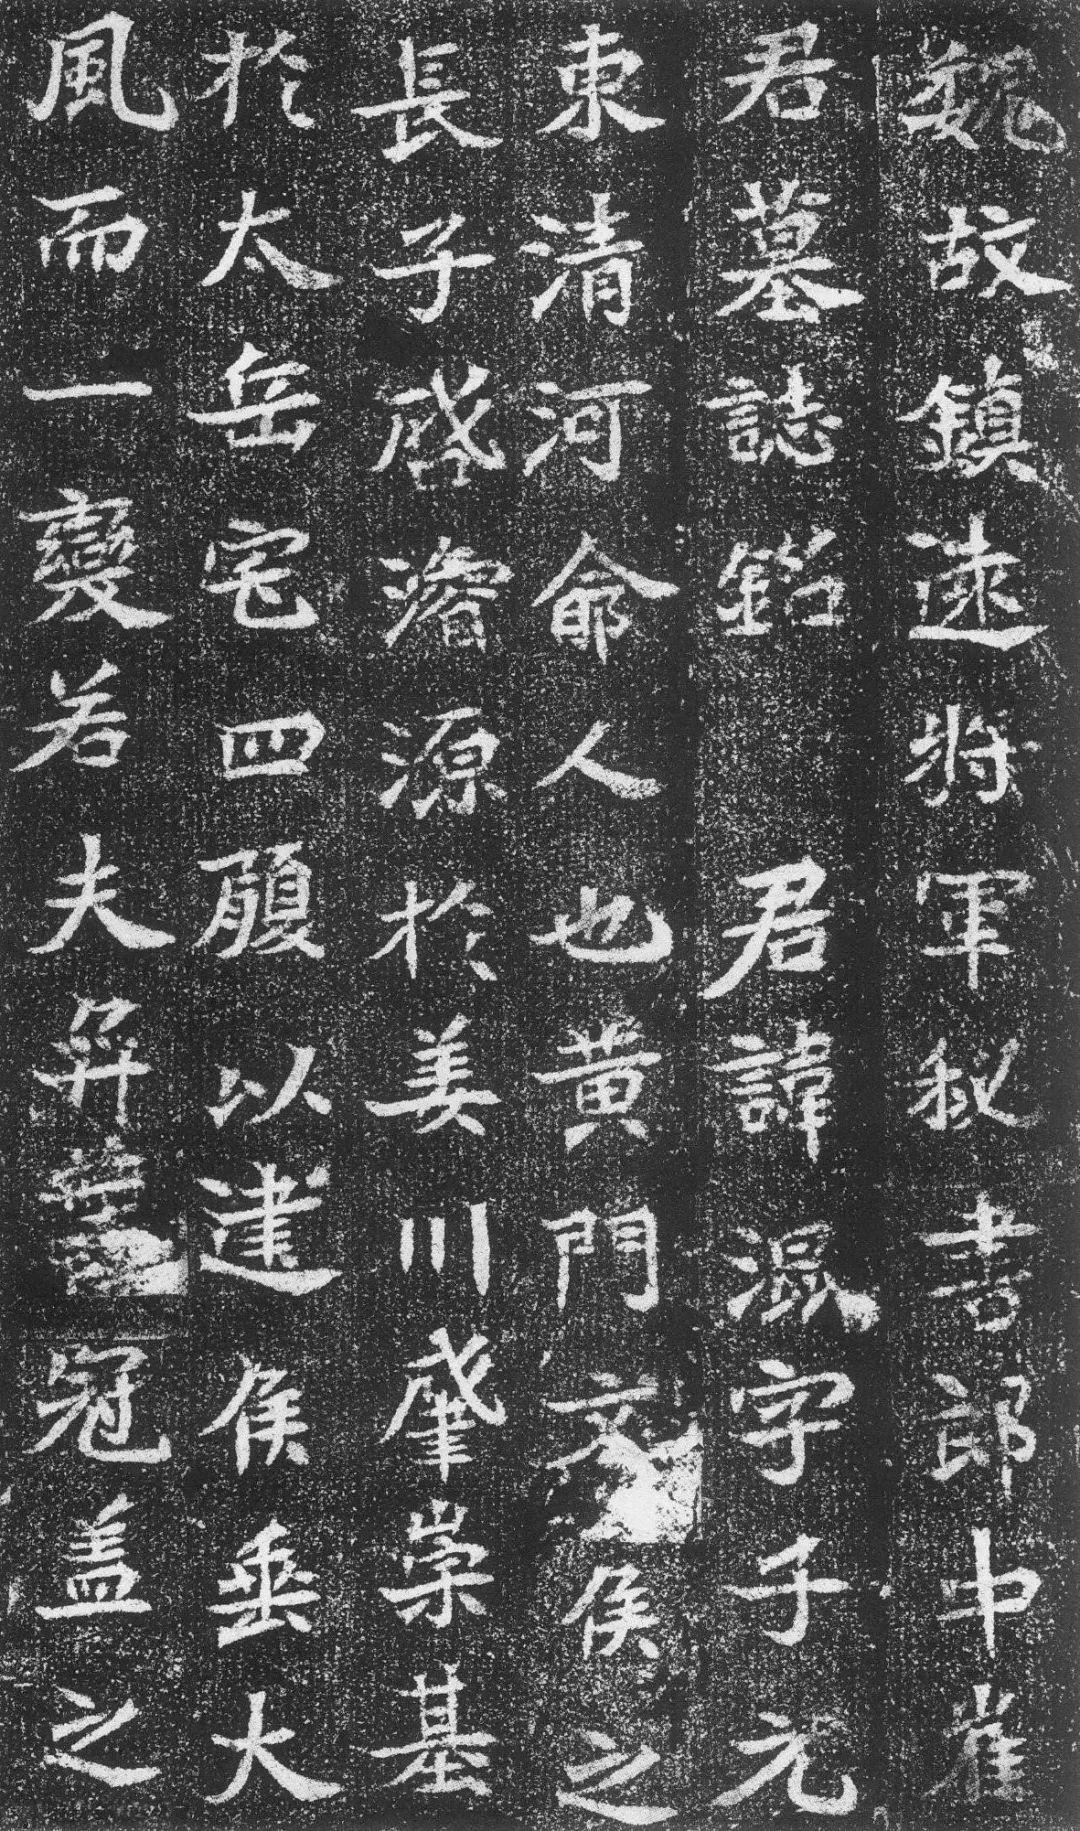 魏故鎮遠將軍秘書郎中崔
君墓誌銘　君諱混字子元
東清河鄃人也黃門文侯之
長子啓濬源於姜川肇崇基
於太岳宅四履以建侯垂大
風而一變若夫冠盖之